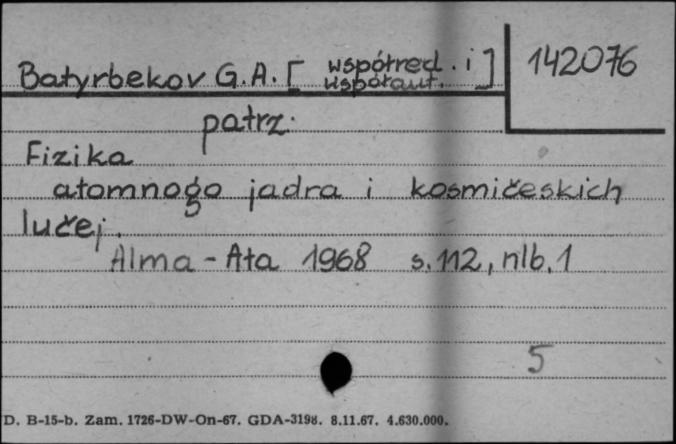 Batyrbekov G.A. [współred. i współaut.] 142076
patrz.
Fizika
atomnogo jadra i kosmičeskich
lučej.
Alma-Ata 1968 s. 112, nlb. 1
5
D. B-15-b. Zam. 1726-DW-On-67. GDA-3198. 8.11.67. 4.630.000.